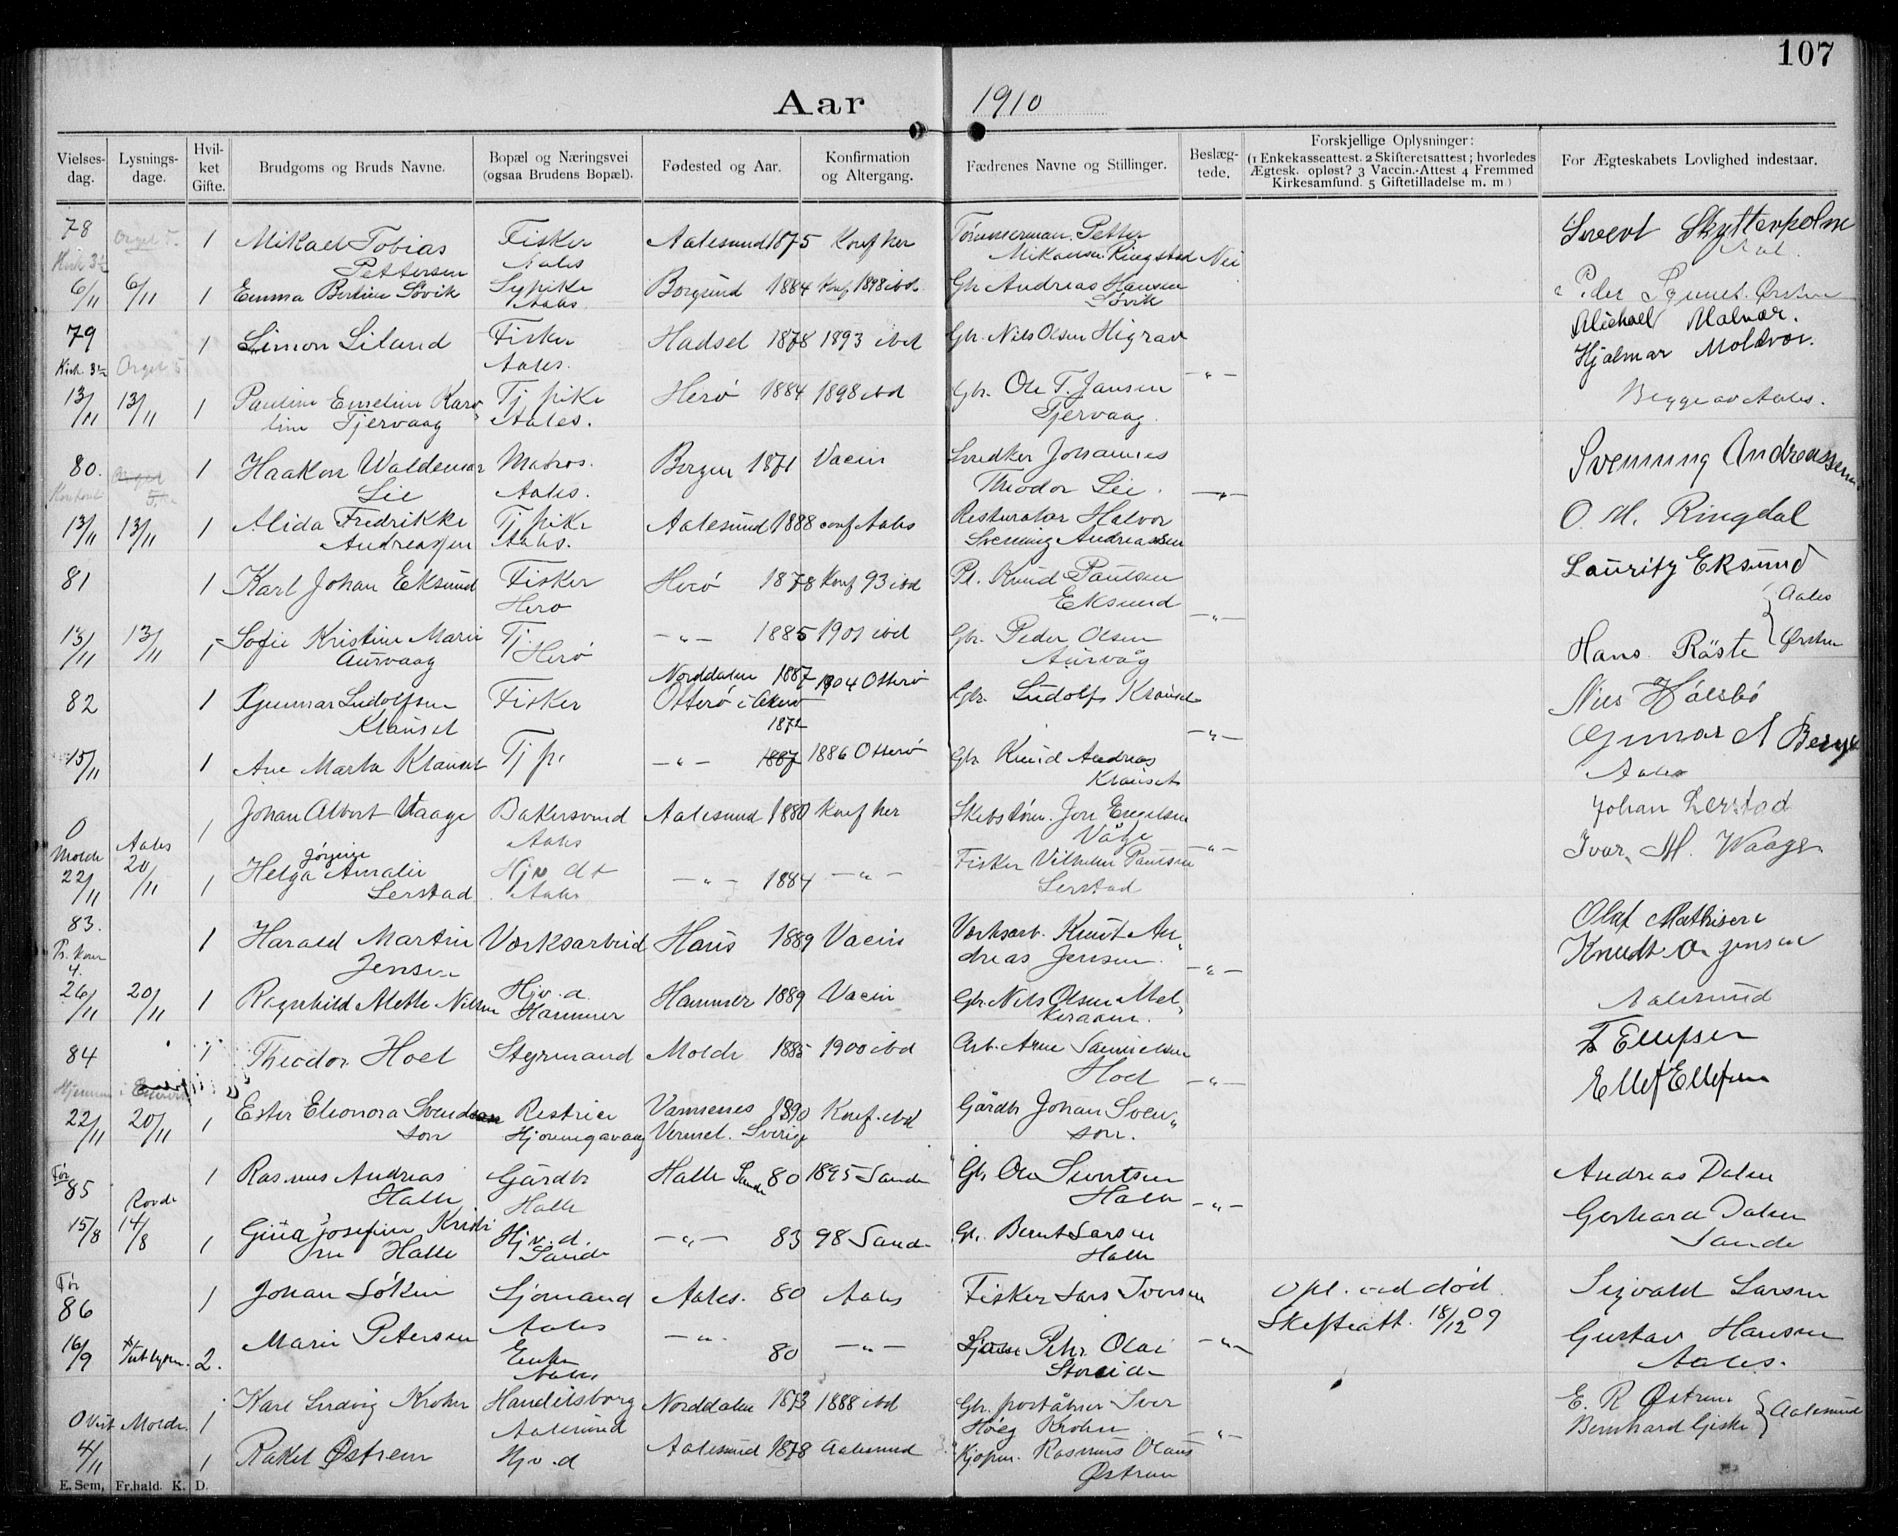 107
Aar 1910
Vielses-dag. Lysnings-dage. Hvilket Gifte. Brudgoms og Bruds Navne. Bopæl og Næringsvei (ogsaa Brudens Bopæl). Fødested og Aar. Konfirmation og Altergang. Fædrenes Navne og Stillinger. Beslægtede. Forskjellige Oplysninger: (1 Enkekasseattest. 2 Skifteretsattest; hvorledes Ægtesk. opløst? 3 Vaccin.-Attest 4 Fremmed Kirkesamfund. 5 Giftetilladelse m. m) For Ægteskabets Lovlighed indestaar.
78 Orgel 5. 1 Mikael Tobias Fisker Aalesund 1875 Konf her Tømmerman Petter
Pettersen Aales Mikansen Ringstad Nei
6/11 6/11 1 Emma Bertine Søvik Sypike Borgund 1884 Konf 1898 ibd. Gbr Andreas Hansen
Aales. Søvik
79 1 Simon Siland Fisker Hadsel 1878 1893 ibd Gbr. Nils Olsen Higrav Michael Malvær.
Orgel 5 Aales. -"- Hjalmar Moldvær.
13/11 13/11 1 Pauline Emeline Karo Tj pike Herø 1884 1898 ibd Gbr. Ole T. Jansen Begge av Aales.
line Tjervaag Aales. Tjervaag.
80. 1 Haakon Waldemar Matros. Bergen 1871 Vacin Johannes Svenning Andreassen
Lie Aales. Theodor Lie. -"-
13/11 13/11 1 Alida Fredrikke Tj pike Aalesund 1888 conf Aales Resturatør Halvor O. M. Ringdal
Andreassen Aales. Svenning Andreassen
81 1 Karl Johan Eksund Fisker Herø 1878 Konf 93 ibd Pl. Knud Paulsen Lauritz Eksund
Herø Eksund -"- Aales
13/11 13/11 1 Sofie Kristine Marie Tj. -"- 1885 1901 ibd Gbr. Peder Olsen Hans Røste Ørsten
Aurvaag Herø Aurvåg
Norddalen 1887
82 1 Gunnar Ludolfsen Fisker Otterø i Akerø 1904 Otterø Gbr. Ludolf Klauset
Klauset 1872 -"- Gunnar A Berge
15/11 1 Ane Marta Klauset Tj pi -"- 1887 1886 Otterø Gbr. Knud Andreas Aales
Klauset
0 1 Johan Albert Vaage Bakersvend Aalesund 1880 Konf her Skibstøm. Jon Engelsen Johan Lerstad
Molde Aales Aales Våge -"- Ivar M. Waage
22/11 20/11 1 Helga Jørgine Amalie Hjv dt -"- 1884 -"- Fisker Vilhelm Paulsen
Lerstad Aales Lerstad
83. 1 Harald Martin Værksarbeid Haus 1889 Vacin Værksarb. Knut An- Olaf Mathisen
4. Jensen dreas Jensen. -"- Knudt A Jensen
26/11 20/11 1 Ragnhild Mette Nilsen Hjv. d. Hammer 1889 Vacin Gbr Nils Olsen Mel- Aalesund
Hammer
84 1 Theodor Hoel Styrmand Molde 1885 1900 ibd Arb. Arne Samuelsen Ellefsen
Hoel -"- Ellef Ellefsen
22/11 20/11 1 Ester Eleonora Svend Restrice 1890 Konf. ibd Gårdbr Johan Sven-
son Hjørungavaag Vermel. Sverige son.
Før
85 1 Rasmus Andreas Gårdbr Halle Sande 80 1895 Sande Gbr Ole Sivertsen Andreas Dalen
Rovde Halle Halle Halle -"-
15/8 14/8 1 Gina Josefine Kristi Hjv. d. -"- 83 98 Sande Gbr. Bernt Larsen Gerhard Dalen
ne Halle Sande Halle Sande
Før
86 1 Johan Løkin Sjømand Aales. 80 Aales Fisker Lars Iversen Opl. ved død. Sigvald Larsen
Aales Skifteatt. 18/12 09
16/9 2. Marie Petersen Enke -"- 80 -"- Petr. Olai -"- Gustav Hansen
Aales Aales.
1 Karl Ludvig Krohn Handelsborg Norddalen 1873 1888 ibd Gbr. poståbner Iver E. R Østrem
0 Molde. Aalesund Høeg Krohn -"- Bernhard Giske Aalesund
4/11 1 Rakel Østrem Hjv. d Aalesund 1878 Aalesund Kjøpm. Rasmus Olaus
Østrem
E. Sem, Fr.hald. K. D.